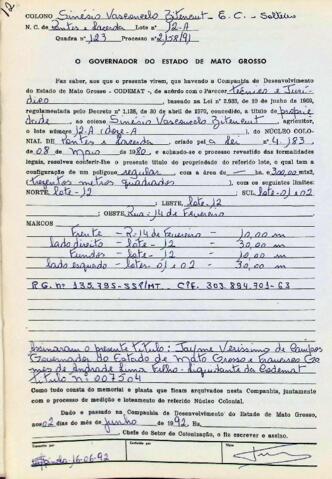 12
COLONO Sinésio Vasconcelo Zitencut - E.C. - Solteiro
N. C. de Pontes e Lacerda Lote nº 12-A
Quadra nº 123 Processo nº 2158/91
O GOVERNADOR DO ESTADO DE MATO GROSSO
Faz saber, aos que o presente virem, que havendo a Companhia de Desenvolvimento
do Estado de Mato Grosso - CODEMAT -, de acordo com o Parecer técnico e Jurí-
dico baseado na Lei nº 2.933, de 10 de junho de 1969,
regulamentada pelo Decreto nº 1.138, de 30 de abril de 1970, concedido, a título de propri-
dade, ao colono Sinésio Vasconcelo Zitencut, agricultor,
o lote número 12-A (doze-A) DO NÚCLEO COLO-
NIAL DE Pontes e Lacerda, criado pela lei nº 4.183,
de 08 de Maio de 1980, e achando-se o processo revestido das formalidades
legais, resolveu conferir-lhe o presente título de propriedade do referido lote, o qual tem a
configuração de um polígono regular, com a área de — ha 300,00 mts2
(trezentos metros quadrados), com os seguintes limites:
NORTE, lote-12 SUL, lote-01 e 02
LESTE, lote-12
OESTE, Rua: 14 de Fevereiro
MARCOS
Frente - R-14 de Fevereiro - 10,00 m
lado direito - lote - 12 30,00 m
Fundos - lote - 12 10,00 m
lado esquerdo - lotes-01 e 02 - 30,00 m
R.G. nº 135.795-SSP/MT. C.P.F. 303.894.701-63
Assinaram o presente título: Jayme Veríssimo de Campos
Governador do Estado de Mato Grosso e Francisco Go-
mes de Andrade Lima Filho - liquidante da Codemat
Título Nº 007504
Como tudo consta do memorial e planta que ficam arquivados nesta Companhia, juntamente
com o processo de medição e loteamento do referido Núcleo Colonial.
Dado e passado na Companhia de Desenvolvimento do Estado de Mato Grosso,
aos 02 dias do mês de junho de 1992. Eu,
Chefe do Setor de Colonização, o fiz escrever e assino.
Transcrito Por
Conferido por
Visto
16-06-92